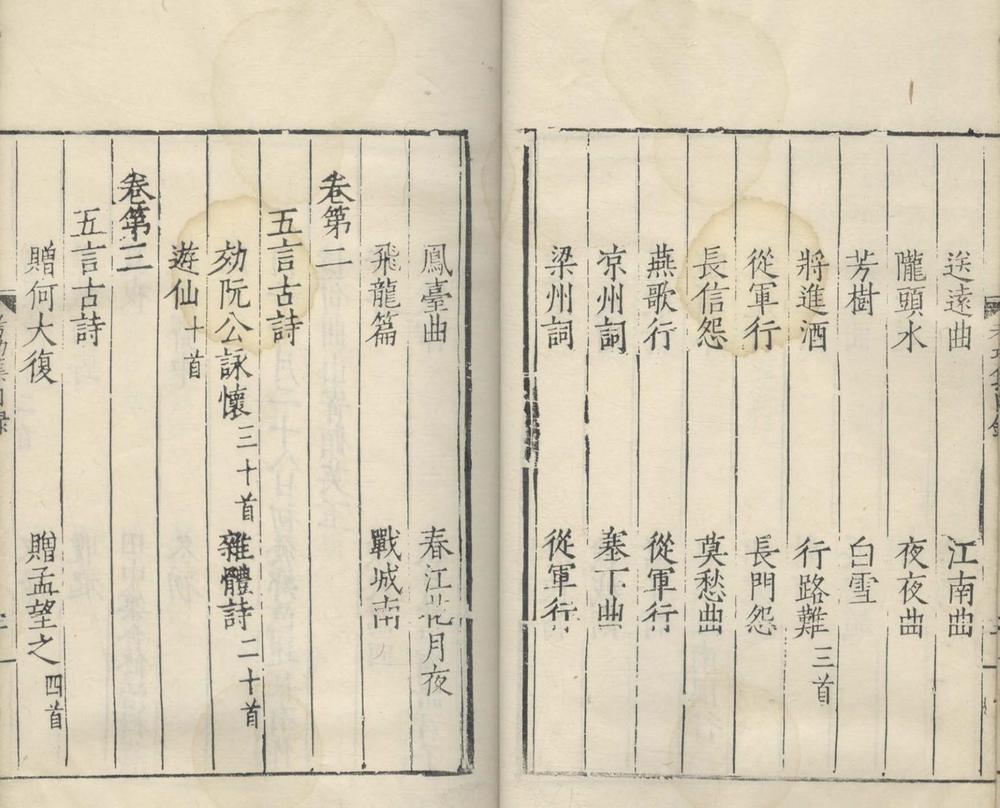 送遠曲 江南曲
隴頭水 夜夜曲
芳樹 白雪
將進酒 行路難三首
從軍行 長門怨
長信怨 莫愁曲
燕歌行 從軍行
凉州詞 塞下曲
梁州詞 從軍行
鳳臺曲 春江花月夜
飛龍篇 戰城南
卷第二
五言古詩
効阮公詠懷三十首 雜體詩二十首
遊仙十首
卷第三
五言古詩
贈何大復 贈孟望之四首